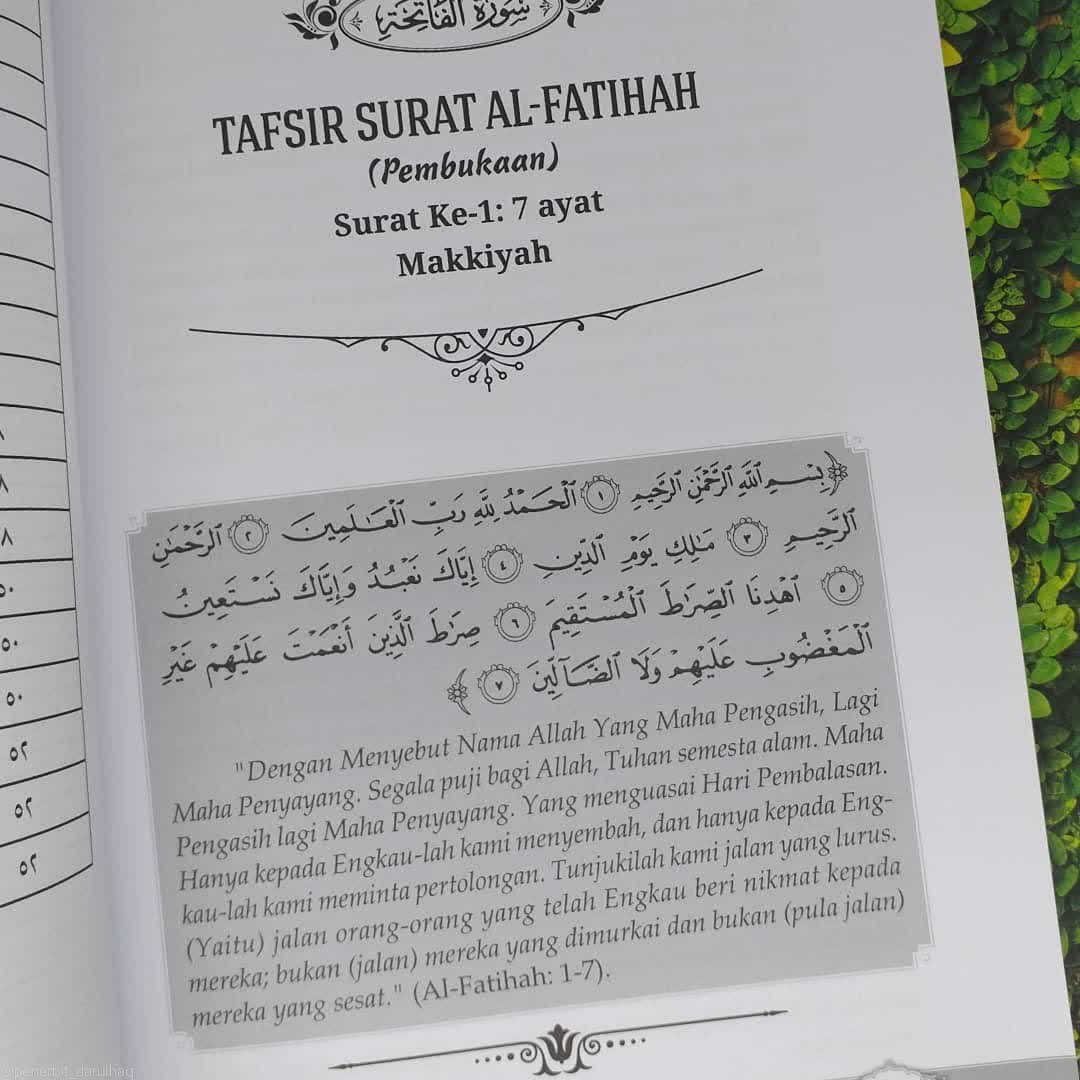 سورة الفاتحة
TAFSIR SURAT AL-FATIHAH
(Pembukaan)
Surat Ke-1: 7 ayat
Makkiyah
﴿بِسْمِ ٱللَّهِ ٱلرَّحْمَٰنِ ٱلرَّحِيمِ ١ ٱلْحَمْدُ لِلَّهِ رَبِّ ٱلْعَٰلَمِينَ ٢ ٱلرَّحْمَٰنِ
ٱلرَّحِيمِ ٣ مَٰلِكِ يَوْمِ ٱلدِّينِ ٤ إِيَّاكَ نَعْبُدُ وَإِيَّاكَ نَسْتَعِينُ
٥ ٱهْدِنَا ٱلصِّرَٰطَ ٱلْمُسْتَقِيمَ ٦ صِرَٰطَ ٱلَّذِينَ أَنْعَمْتَ عَلَيْهِمْ غَيْرِ
ٱلْمَغْضُوبِ عَلَيْهِمْ وَلَا ٱلضَّآلِّينَ ٧﴾
"Dengan Menyebut Nama Allah Yang Maha Pengasih, Lagi
Maha Penyayang. Segala puji bagi Allah, Tuhan semesta alam. Maha
Pengasih lagi Maha Penyayang. Yang menguasai Hari Pembalasan.
Hanya kepada Engkau-lah kami menyembah, dan hanya kepada Eng-
kau-lah kami meminta pertolongan. Tunjukilah kami jalan yang lurus.
(Yaitu) jalan orang-orang yang telah Engkau beri nikmat kepada
mereka; bukan (jalan) mereka yang dimurkai dan bukan (pula jalan)
mereka yang sesat." (Al-Fatihah: 1-7).
٥٠
٥٠
٥٢
٥٢
٥٢
@penerbit_darulhaq